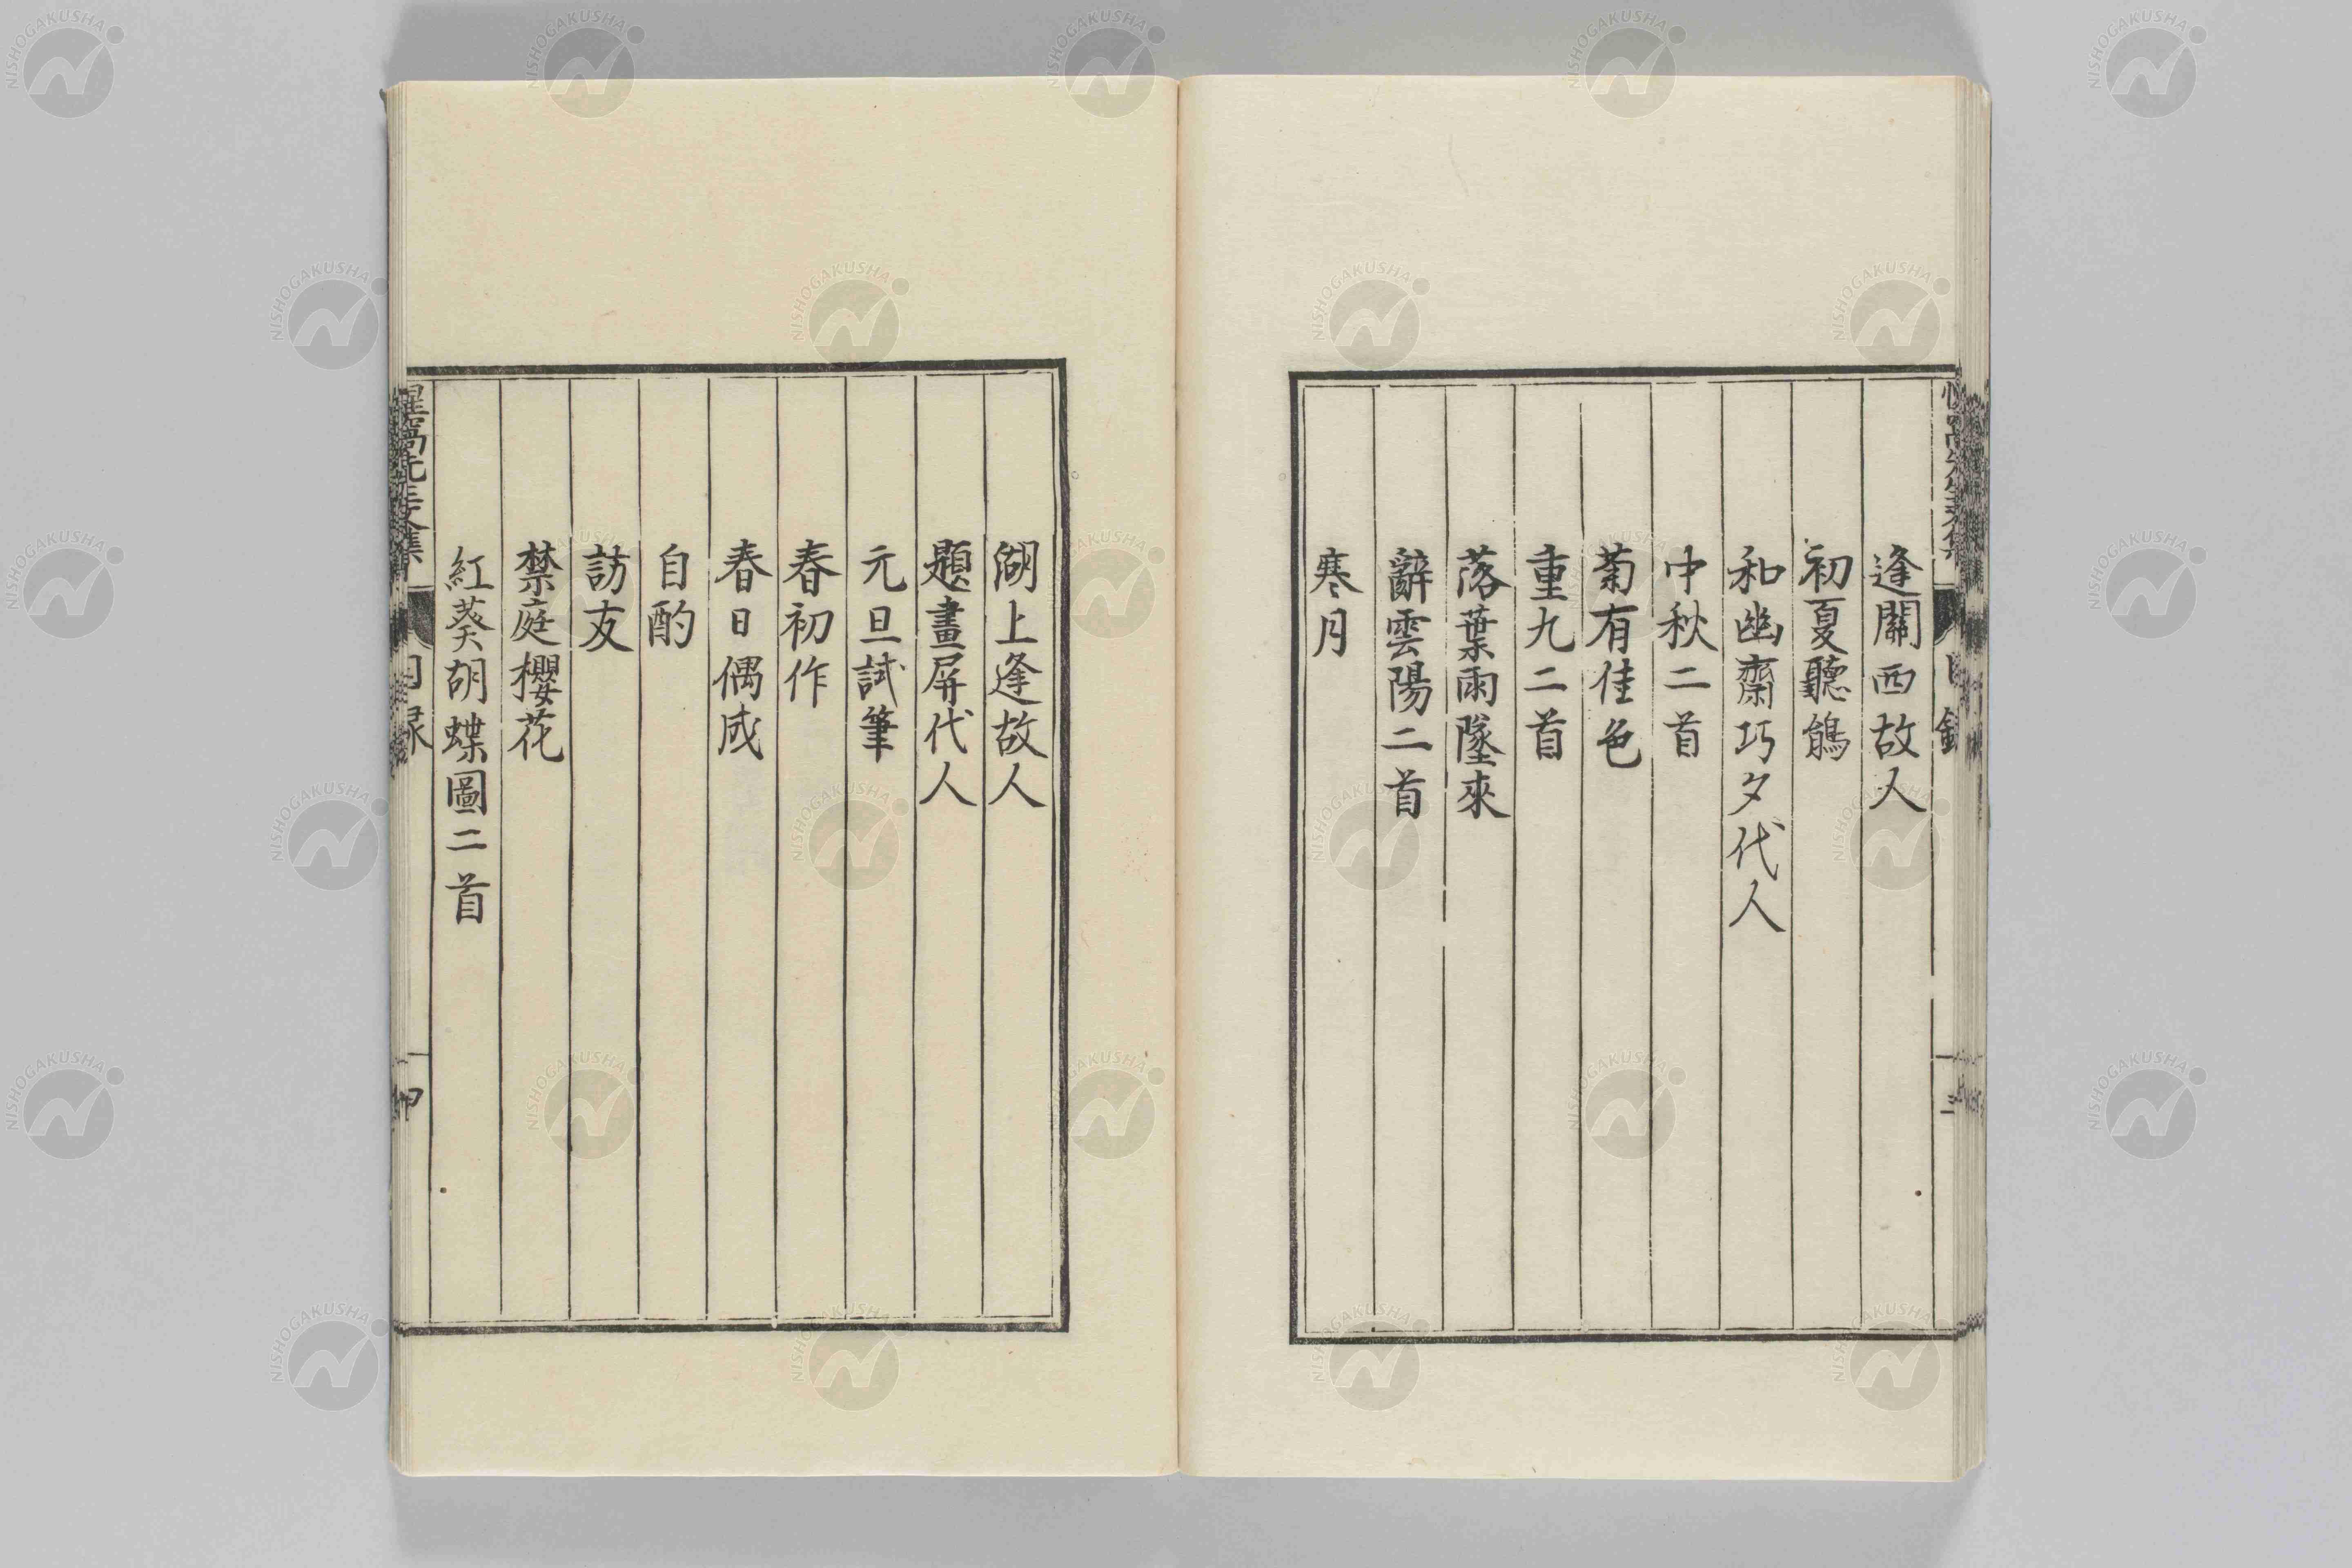 惺窩先生文集 目録 三
逢關西故人
初夏聽鵑
和幽齋巧夕代人
中秋二首
菊有佳色
重九二首
落葉雨墜來
辭雲陽二首
寒月
湖上逢故人
題畫屏代人
元旦試筆
春初作
春日偶成
自酌
訪友
禁庭櫻花
紅葵胡蝶圖二首
惺窩先生文集 目録 四
NISHOGAKUSHA